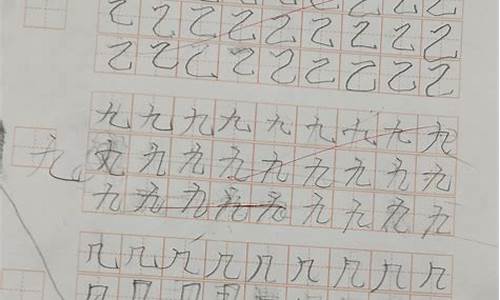 乙乙乙乙乙乙乙乙乙
乙乙乙乙乙乙乙乙乙
九九九九九九九九九
九
九九九九九九九九九
九九九九九九九九九
几几几几几几几几几